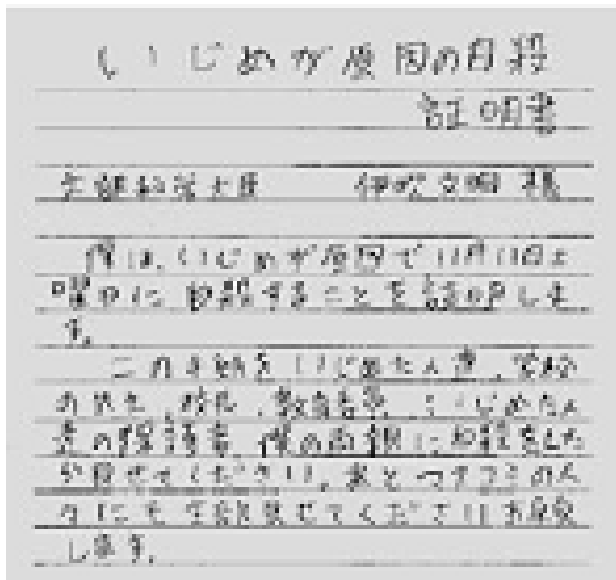 いじめが原因の自殺
証明書
文部科学大臣 伊吹文明 様
僕は、いじめが原因で11月11日土
曜日に自殺することを証明しま
す。
この手紙をいじめた人達、
の、校長、教育委員、いじめた人
達の保護者、僕の両親に
せてください。あとマスコミの人
々にも全部見せてください。お願い
します。